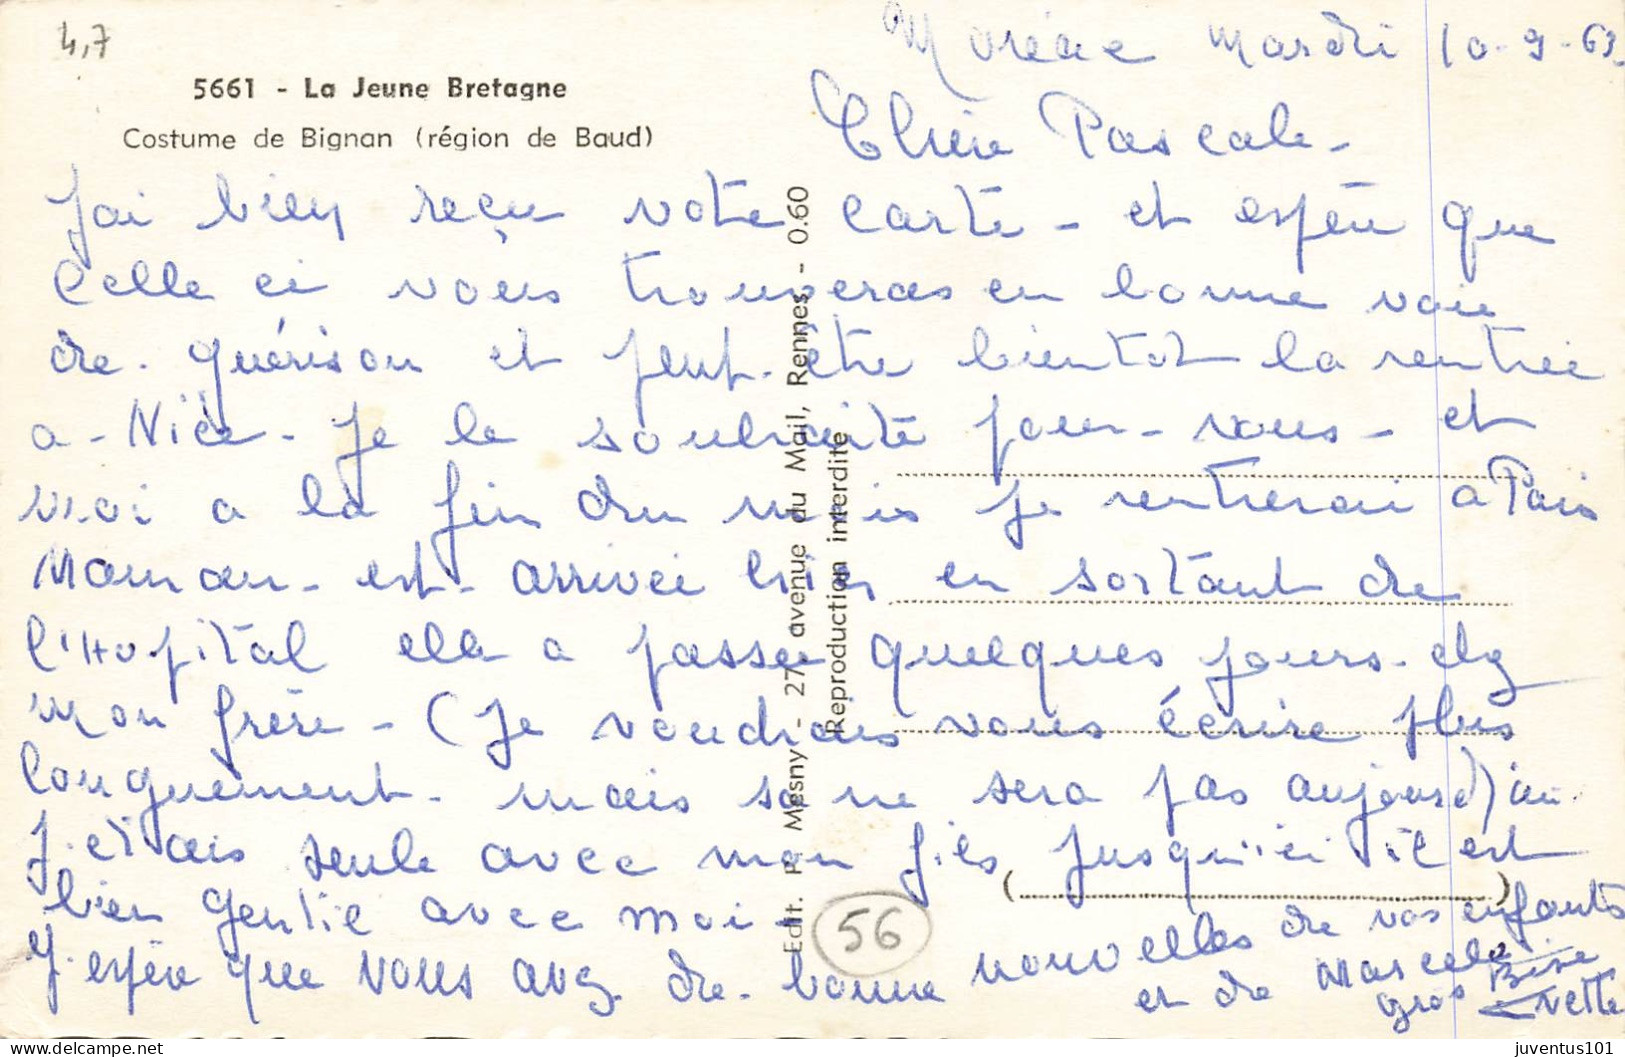 4,7
5661 - La Jeune Bretagne
Costume de Bignan (région de Baud)
Mardi 10-9-63
Chère Pascale -
J'ai bien reçu votre carte - et espère que
celle ci vous trouveras en bonne voie
de. guérison et peut-être bientot la rentrée
a - Nice - Je le souhaite pour - vous - et
moi a la fin du mois je rentrerai a Paris
Maman - est - arrivée hier en sortant de
l'Hopital elle a passée quelques jours - chz
mon frère - (je voudrais vous écrire plus
longuement - mais sa ne sera pas aujourd'hui.
J'étais seule avec mon fils jusqu'ici il est
bien gentil avec moi -
J'espère que vous avez de - bonne nouvelles de vos enfants
et de Marcelle
gros Bise
Yvette
Edit. P. Mesny - 27, avenue du Mail, Rennes - 0.60
Reproduction interdite
56
juventus101